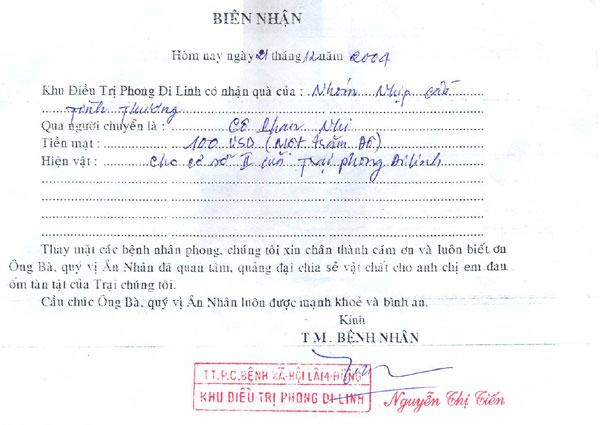 BIÊN NHẬN
Hôm nay ngày 21 tháng 12 năm 2004
Khu Điều Trị Phong Di Linh có nhận quà của : Nhóm Nhịp cầu
Tình Thương
Qua người chuyển là : Cô Chan Nhi
Tiền mặt : 100 USD (Một trăm Đô)
Hiện vật : Cho cơ sở II của Trại phong Di linh
Thay mặt các bệnh nhân phong, chúng tôi xin chân thành cám ơn và luôn biết ơn
Ông Bà, quý vị Ân Nhân đã quan tâm, quảng đại chia sẻ vật chất cho anh chị em đau
ốm tàn tật của Trại chúng tôi.
Cầu chúc Ông Bà, quý vị Ân Nhân luôn được mạnh khoẻ và bình an.
Kính
T M . BỆNH NHÂN
T T.P.C.BỆNH XÃ-HỘI LÂM-ĐỒNG
KHU ĐIỀU TRỊ PHONG DI-LINH
Nguyễn Thị Tiến